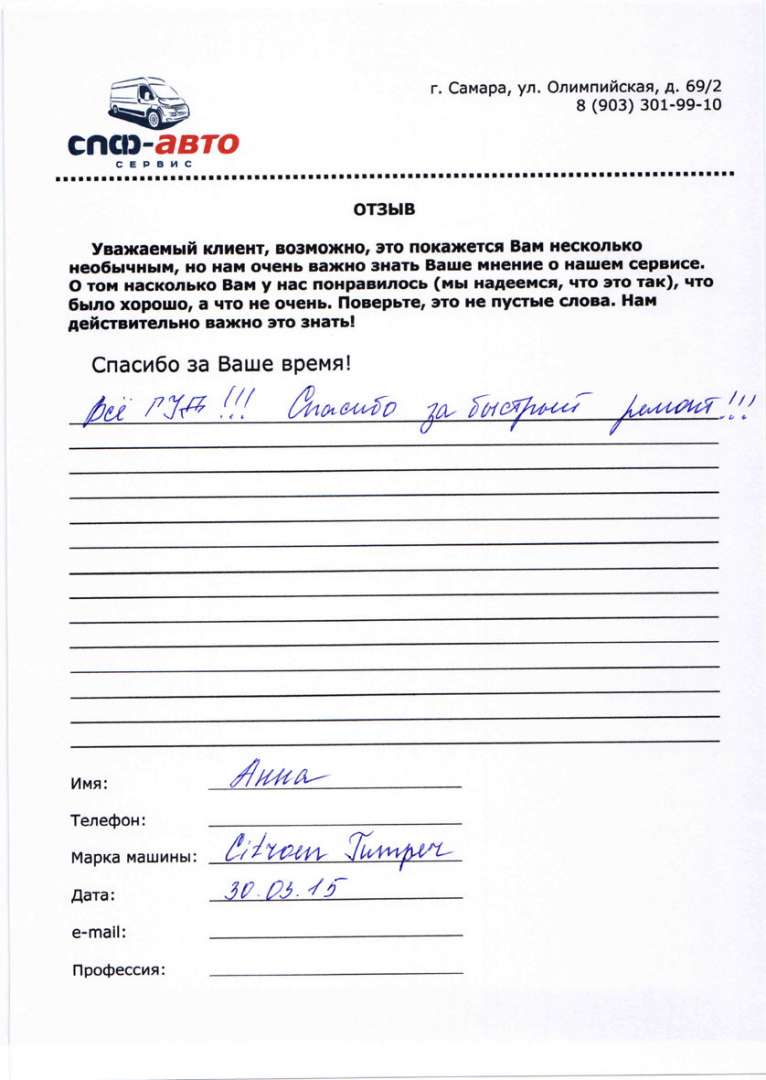 г. Самара, ул. Олимпийская, д. 69/2
8 (903) 301-99-10
СПФ-АВТО
СЕРВИС
ОТЗЫВ
Уважаемый клиент, возможно, это покажется Вам несколько
необычным, но нам очень важно знать Ваше мнение о нашем сервисе.
О том насколько Вам у нас понравилось (мы надеемся, что это так), что
было хорошо, а что не очень. Поверьте, это не пустые слова. Нам
действительно важно это знать!
Спасибо за Ваше время!
Всё ГУД!!! Спасибо за быстрый ремонт!!!
Имя: Анна
Телефон:
Марка машины: Citroen Jumper
Дата: 30.03.15
e-mail:
Профессия: